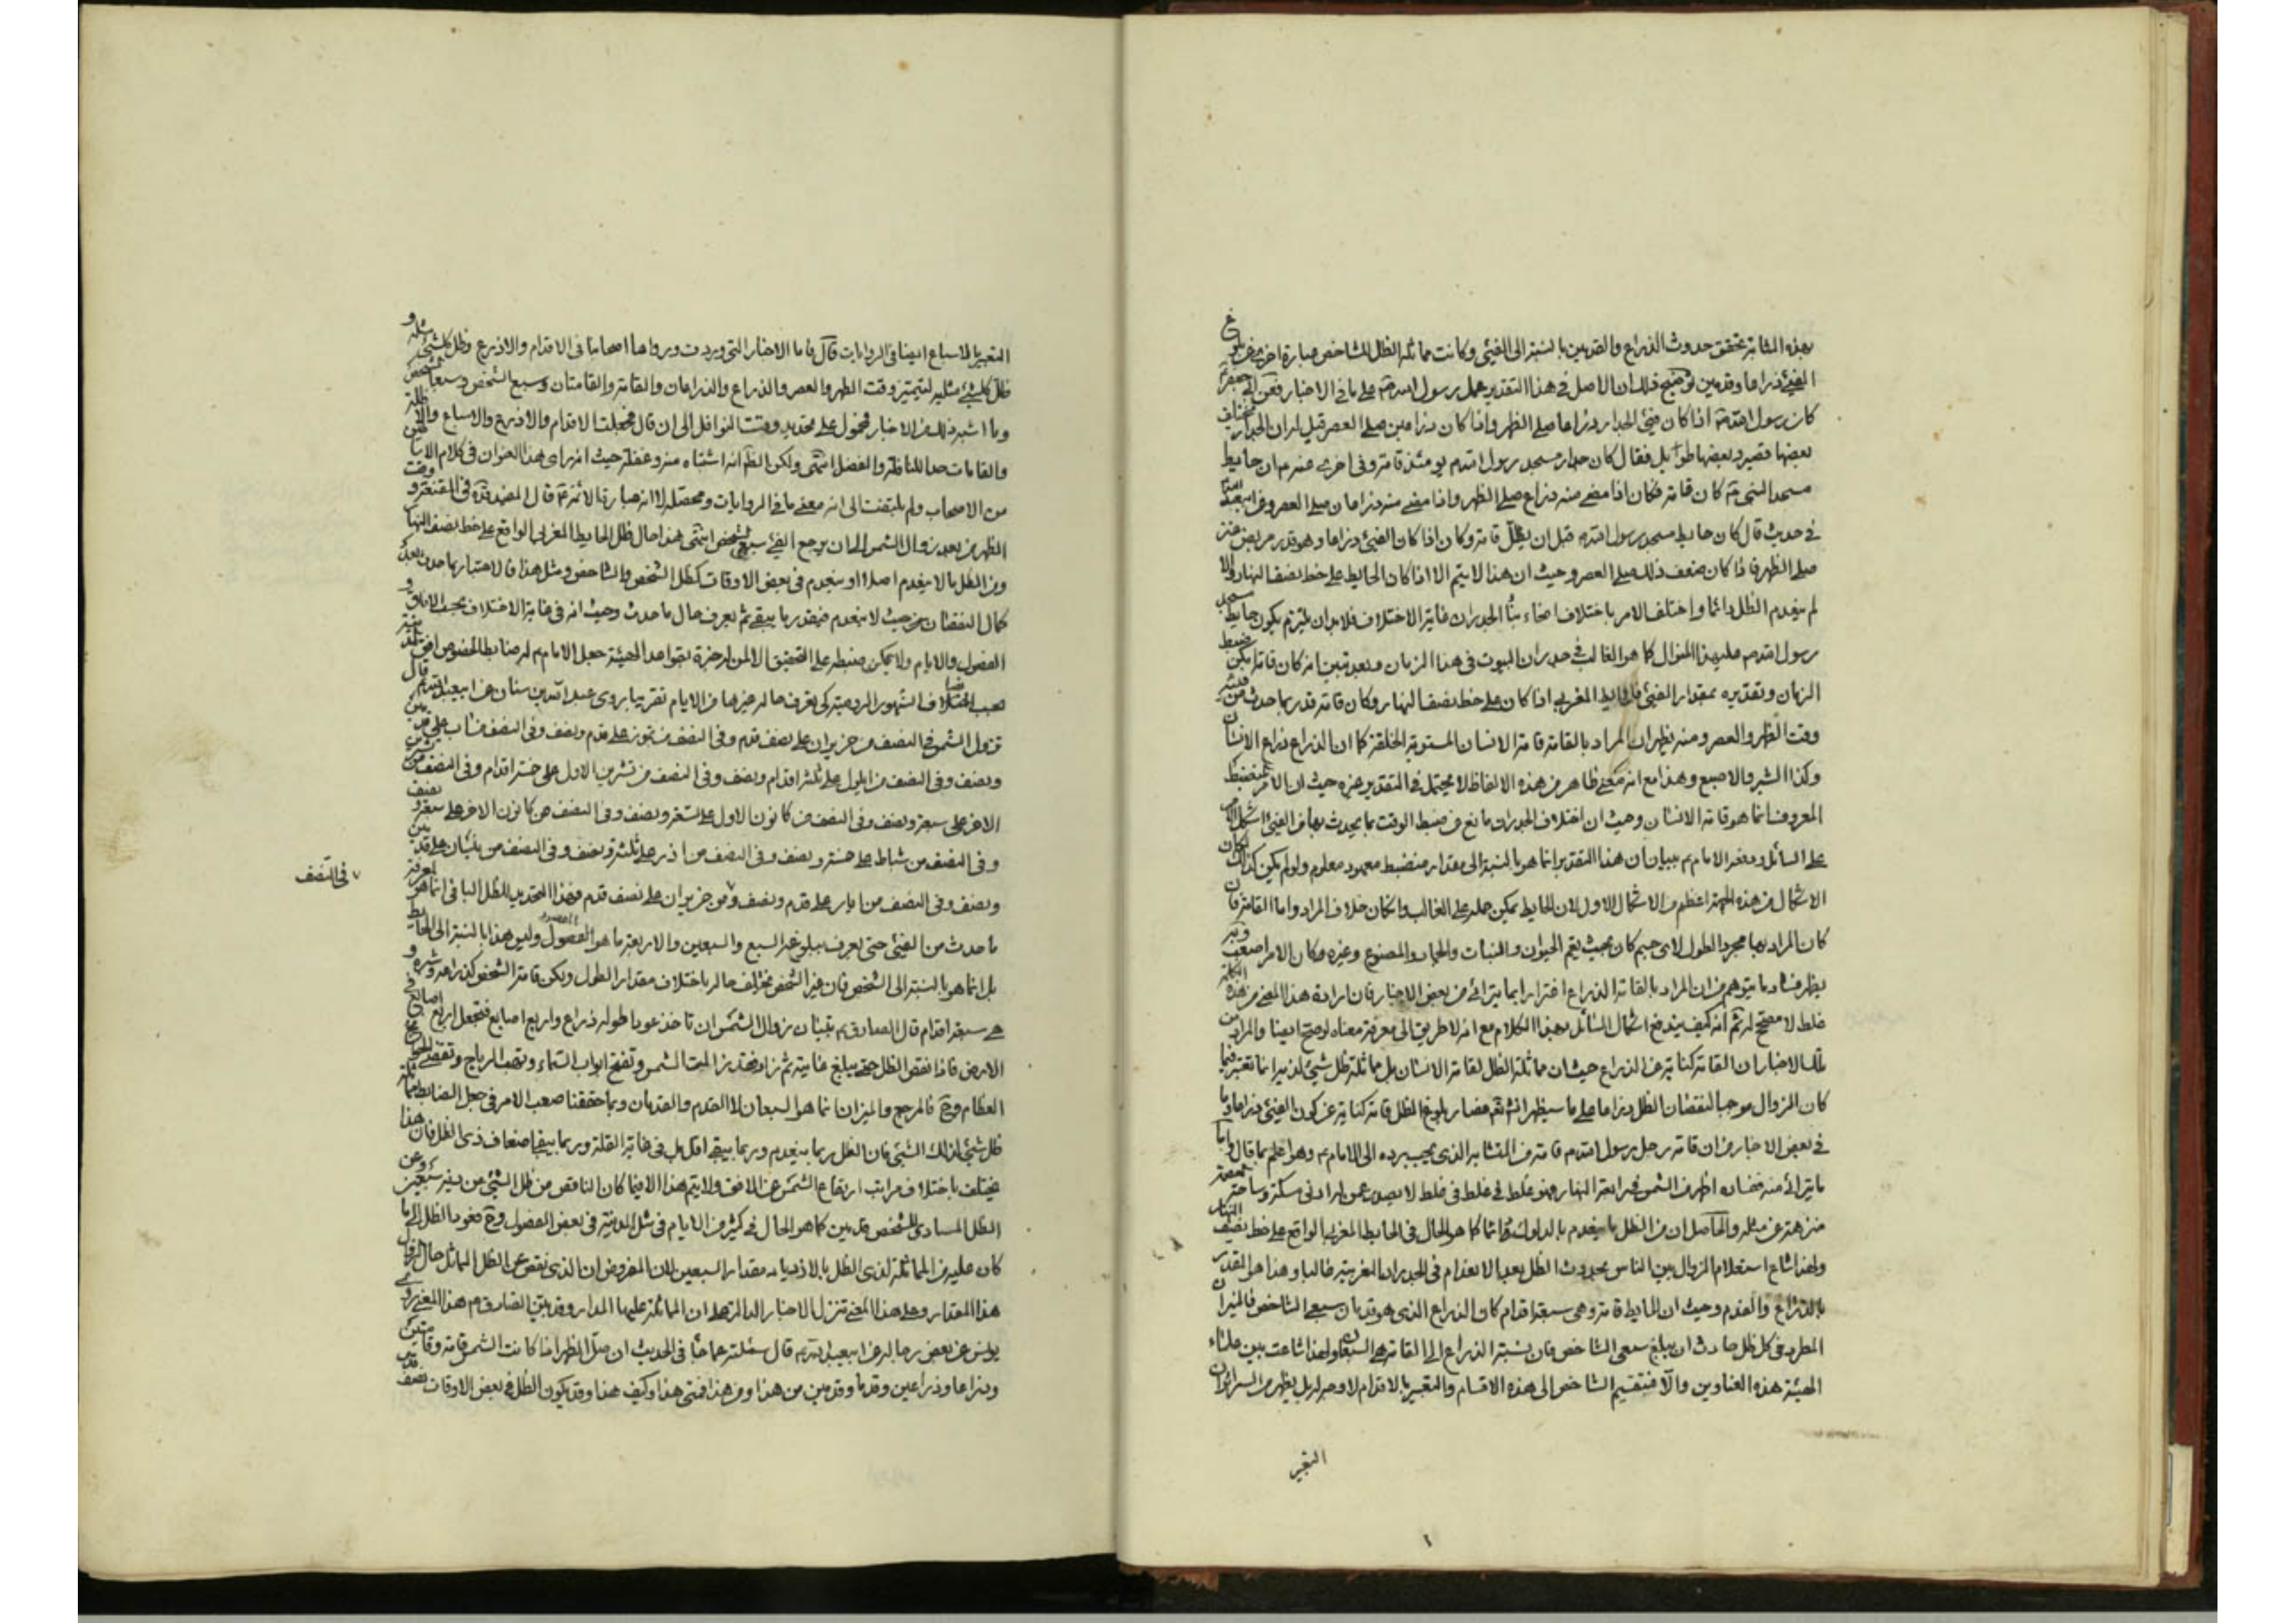 بهذه المثابة تحقق حدوث الذراع والقدمين بالنسبة الى الفيئ وكانت مماثلة الظل للشاخص عبارة اخرى عن بلوغ
الفيئ ذراعا وقدمين توضيح ذلك ان الاصل فى هذا التقدير عمل رسول الله ص على ما فى الاخبار فعن ابى جعفر ع
كان رسول الله ص اذا كان فيئ الجدار ذراعا صلى الظهر واذا كان ذراعين صلى العصر قيل له ان الجدار مختلف
بعضها قصير وبعضها طويل فقال كان جدار مسجد رسول الله ص يومئذ قامة وفى اخرى عنه ع ان حايط
مسجد النبى ص كان قامة فكان اذا مضى منه ذراع صلى الظهر واذا مضى منه ذراعان صلى العصر وعن ابيعبد الله ع
فى حديث قال كان حايط مسجد رسول الله ص قبل ان يظلل قامة وكان اذا كان الفيئ ذراعا وهو قدر مربض عنز
صلى الظهر فاذا كان ضعف ذلك صلى العصر وحيث ان هذا لا يتم الا اذا كان الحايط على خط نصف النهار والا
لم ينعدم الظل دائما واختلف الامر باختلاف انحاء بناء الجدران غاية الاختلاف فلا بد ان يلتزم بكون حايط مسجد
رسول الله ص على هذا المنوال كما هو الغالب فى جدران البيوت فى هذا الزمان وبعد تبين انه كان قامة يمكن ضبط
الزمان وتقديره بمقدار الفيئ فالحايط المغربى اذا كان على خط نصف النهار وكان قامة قدر بما حدث من فيئه
وقت الظهر والعصر ومنه يظهر ان المراد بالقامة قامة الانسان المستوية الخلقة كما ان الذراع ذراع الانسان
وكذا الشبر والاصبع وهذا مع انه معنى ظاهر من هذه الالفاظ لا يحتمل فى التقدير غيره حيث ان الامر المنضبط
المعروف انما هو قامة الانسان وحيث ان اختلاف الجدران مانع عن ضبط الوقت بما يحدث بها من الفيئ اشكل الامر
على السائل ودفعه الامام ع ببيان ان هذا التقدير انما هو بالنسبة الى مقدار منضبط معهود معلوم ولو لم يكن كذلك لكان
الاشكال من هذه الجهة اعظم من الاشكال الاول لان الحايط يمكن حمله على الغالب وان كان خلاف المراد واما القامة فان
كان المراد بها مجرد الطول لاى جسم كان بحيث يعم الحيوان والنبات والجماد والمصنوع وغيره وكان الامر اصعب وبه
يظهر فساد ما يتوهم من ان المراد بالقامة الذراع اغترارا بما يترائى من بعض الاخبار فان ارادة هذا المعنى من هذه الكلمة
غلط لا مصحح له ثم انه كيف يندفع اشكال السائل بهذا الكلام مع انه لا طريق الى معرفة معناه لو صح ايضا والمراد من
تلك الاخبار ان القامة كناية عن الذراع حيث ان مماثلة الظل لقامة الانسان بل مماثلة ظل شيئ لذيه انما تعتبر فيما
كان الزوال موجبا لنقصان الظل ذراعا على ما سيظهر انشاء الله تعم فصار بلوغ الظل قامة كناية عن كون الفيئ ذراعا وما
فى بعض الاخبار من ان قامة رحل رسول الله ص قامة من المتشابه الذى يجب رده الى الامام ع وهو اعلم بما قال واما
ما يترائى منه ففساده اظهر من الشمس فى رابعة النهار وهو غلط فى غلط فى غلط لا يصدر عمن له ادنى مسكة وساحة
منزهة عن مثله والحاصل ان من الظل ما ينعدم بالدلوك دائما كما هو الحال فى الحايط المغربى الواقع على خط نصف النهار
ولهذا شاع استعلام الزوال بين الناس بحدوث الظل بعد الانعدام فى الجدران المغربية غالبا وهذا هو المقدر
بالذراع والقدم وحيث ان الحايط قامة وهى سبعة اقدام كان الذراع الذى هو قدمان سبعى الشاخص فالميزان
المطرد فى كل ظل حادث ان يبلغ سبعى الشاخص فان نسبة الذراع الى القامة هى السبعان ولهذا شاعت بين علماء
الهيئة هذه العناوين والا فتقسيم الشاخص الى هذه الاقسام والتعبير بالاقدام لا وجه له بل يظهر من السرائر ان
التعبير
التعبير بالاسباع ايضا فى الروايات قال فاما الاخبار التى وردت ورواها اصحابنا فى الاقدام والاذرع وظل كل شئ مثله و
ظل كل شئ مثليه لتمييز وقت الظهر والعصر والذراع والذراعان والقامة والقامتان وسبع الشخص وسبعا الشخص
وما اشبه ذلك من الاخبار فمحمول على تحديد وقت النوافل الى ان قال فجعلت الاقدام والاذرع والاسباع والاظلة
والقامات حدا للنافلة والفضل انتهى ولكن الظ انه اشتباه منه وغفلة حيث انه راى هذا العنوان فى كلام الاساطين
من الاصحاب ولم يلتفت الى انه معنى ما فى الروايات ومحصله لا انه عبارة الائمة ع قال المفيد قده فى المقنعة ووقت
الظهر من بعد زوال الشمس الى ان يرجع الفئ سبعى الشخص انتهى هذا حال ظل الحايط المغربى الواقع على خط نصف النهار
ومن الظل ما لا ينعدم اصلا او ينعدم فى بعض الاوقات كظل الشخص والشاخص ومثل هذا فالاعتبار بما حدث بعد
كمال النقصان من حيث لا ينعدم فيقدر ما يبقى ثم يعرف حال ما حدث وحيث انه فى غاية الاختلاف بحسب الافاق و
الفصول والايام ولا يمكن ضبطه على التحقيق الا لمن له خبرة بقواعد الهيئة جعل الامام ع له ضابطا لخصوص افق بلده
بحسب اختلاف الشهور الرومية كى يعرف حاله غيرها من الايام تقريبا روى عبد الله بن سنان عن ابيعبد الله ع قال
تزول الشمس فى النصف من حزيران على نصف قدم وفى النصف من تموز على قدم ونصف وفى النصف من اب على قدمين
ونصف وفى النصف من ايلول على ثلثة اقدام ونصف وفى النصف من تشرين الاول على خمسة اقدام وفى النصف من تشرين
الاخر على سبعة ونصف وفى النصف من كانون الاول على تسعة ونصف وفى النصف من كانون الاخر على سبعة ونصف
وفى النصف من شباط على خمسة ونصف وفى النصف من اذر على ثلثة ونصف وفى النصف من نيسان على قدمين
ونصف وفى النصف من ايار على قدم ونصف ومن حزيران على نصف قدم وهذا التحديد للظل الباقى انما هو لمعرفة
، فى النصف
ما حدث من الفيئ حتى يعرف بلوغه السبع والسبعين والاربعة ما هو المقصود وليس هذا بالنسبة الى الحايط
بل انما هو بالنسبة الى الشخص فان غير الشخص يختلف حاله باختلاف مقدار الطول ويكن قامة الشخص كذراعه وشبره و
هى سبعة اقدام قال الصادق ع تبيان زوال الشمس ان تاخذ عودا طوله ذراع واربع اصابع فتجعل اربع اصابع فى
الارض فاذا نقص الظل حتى يبلغ غايته ثم زاد فقد زالت الشمس وتفتح ابواب السماء وتهب الرياح وتقضى الحوائج
العظام وح فالمرجع والميزان انما هو السبعان لا القدم والقدمان وبما حققنا صعب الامر فى جعل الضابط مماثلة
ظل شئ لذلك الشئ فان الظل ربما ينعدم وربما يبقى اقل بل فى غاية القلة وربما يبقى اضعاف ذى الظل فان هذا
يختلف باختلاف مراتب ارتفاع الشمس عن الافق ولا يتم هذا الا فيما كان الناقص من ظل الشئ من سبعين وعن
الظل المساوى للشخص قدمين كما هو الحال فى كثير من الايام فى مثل المدينة فى بعض الفصول وح فعود الظل الى ما
كان عليه من المماثلة لذى الظل بالازدياد مقدار السبعين لان المفروض ان الذى نقص عن الظل المماثل حال الزوال
هذا المقدار وعلى هذا المعنى تنزل الاخبار الدالة على ان المماثلة عليها المدار وقد بين الصادق ع هذا المعنى روى
يونس عن بعض رجاله عن ابيعبد الله ع قال سئلته عما جاء فى الحديث ان صل الظهر اذا كانت الشمس قامة وقامتين
وذراعا وذراعين وقدما وقدمين من هذا ومن هذا فمتى هذا وكيف هذا وقد يكون الظل فى بعض الاوقات نصف قدم